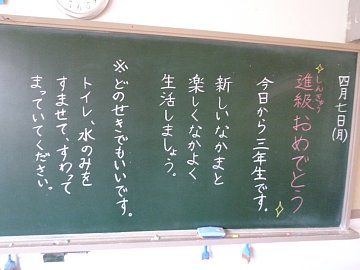 四月七日(月)
しんきゅう
進級おめでとう
今日から三年生です。
新しいなかまと
楽しくなかよく
生活しましょう。
※どのせきでもいいです。
トイレ、水のみを
すませて、すわって
まっていてください。